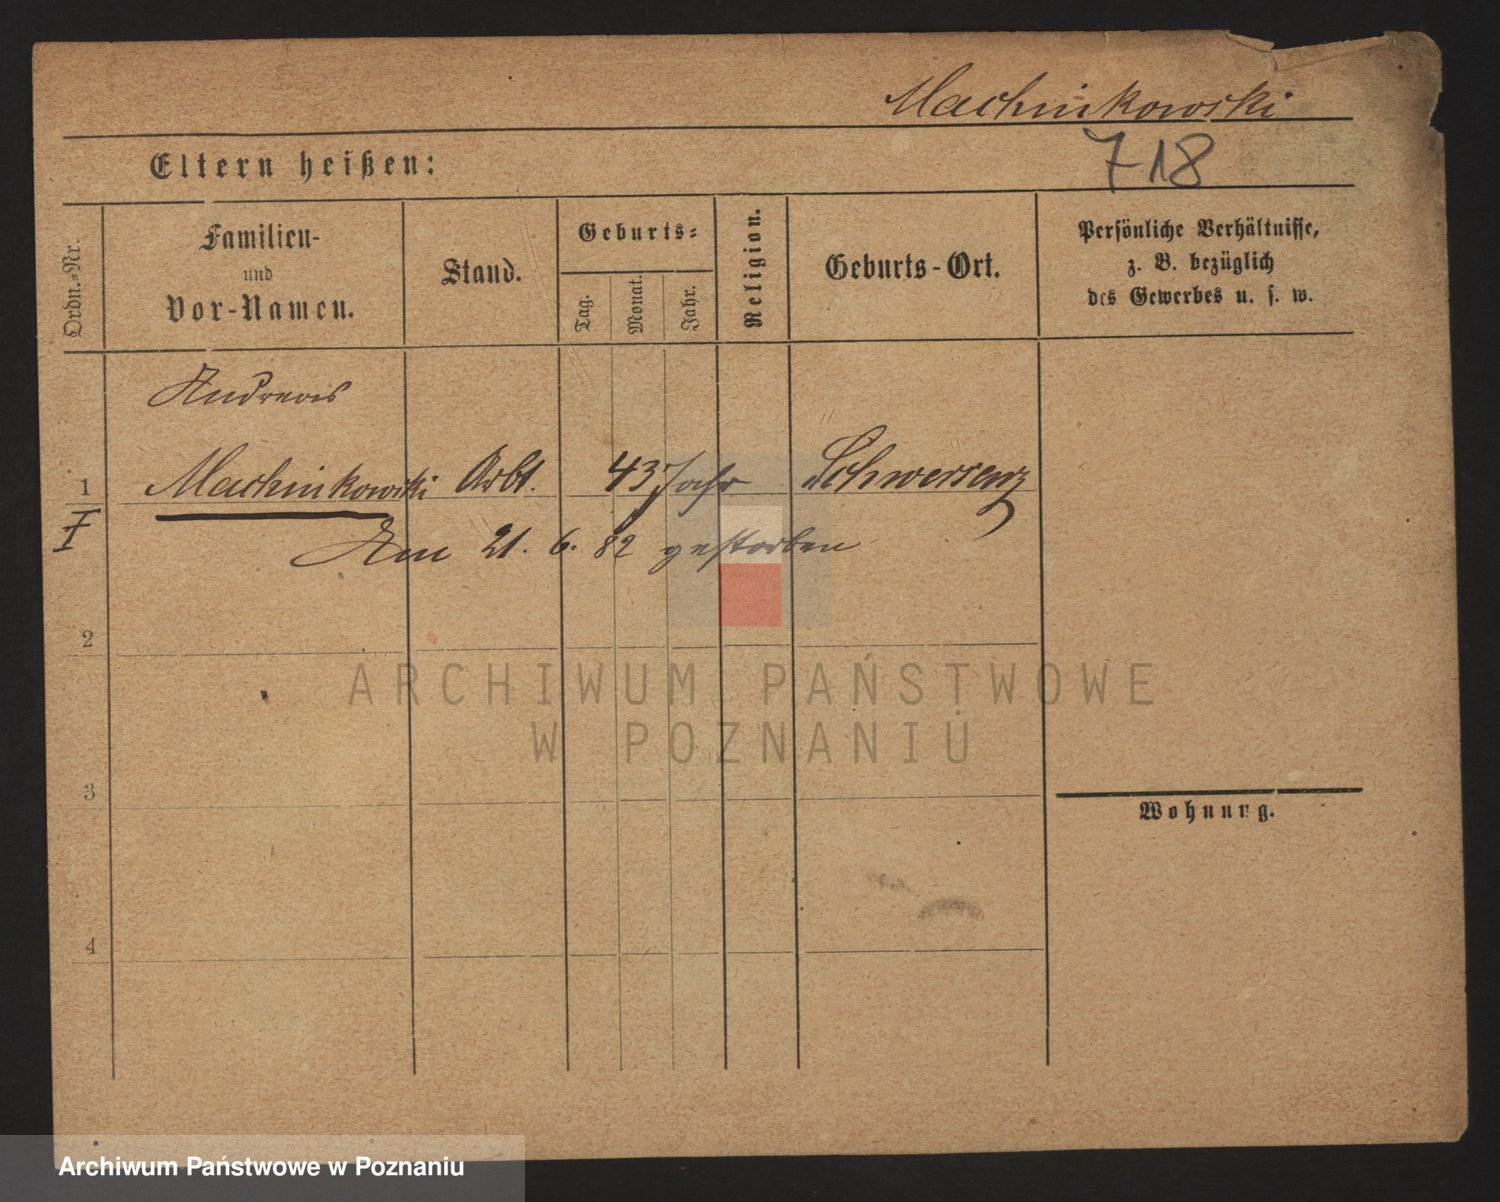 Machinkowski
718
Eltern heißen:
Ordn.-Nr.
Familien-
und
Vor-Namen.
Stand.
Geburts-
Tag.
Monat.
Jahr.
Religion.
Geburts-Ort.
Persönliche Verhältnisse,
z. B. bezüglich
des Gewerbes u. s. w.
Andreas
1 Machinkowski Arbt. 43 Jahr Schwersenz
Am 21. 6. 82 gestorben
2
3
4
Wohnung.
ARCHIWUM PAŃSTWOWE
W POZNANIU
Archiwum Państwowe w Poznaniu